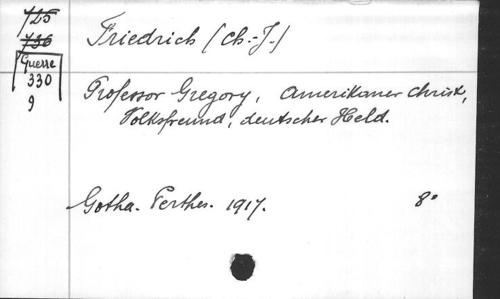 725
736
Guerre
330
9
Friedrich (Ch.-J.)
Professor Gregory, Amerikaner Christ,
Volksfreund, deutscher Held.
Gotha. Perthes. 1917. 8°